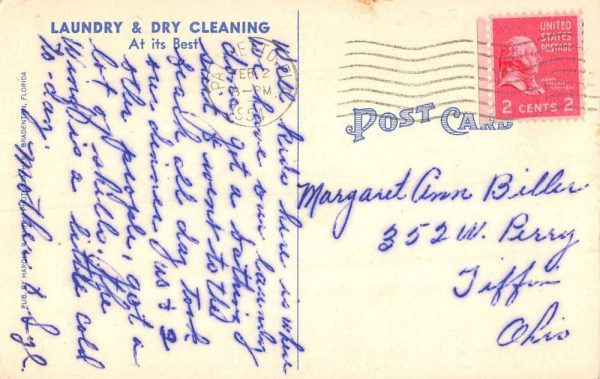 LAUNDRY & DRY CLEANING
At its Best
Well kids here is where
we have our laundry
done. got a bathing
suit & went to the
beach all day took
our dinner us & 2
other people, got a
lot of shells. The
Wind is a little cold
to-day.
Mother &
PALMETTO
FEB 2
PM
UNITED
STATES
POSTAGE
2 CENTS 2
POST CARD
Margaret Ann Biller
352 W. Perry
Tiffin
Ohio
BRADENTON, FLORIDA
PUB. BY